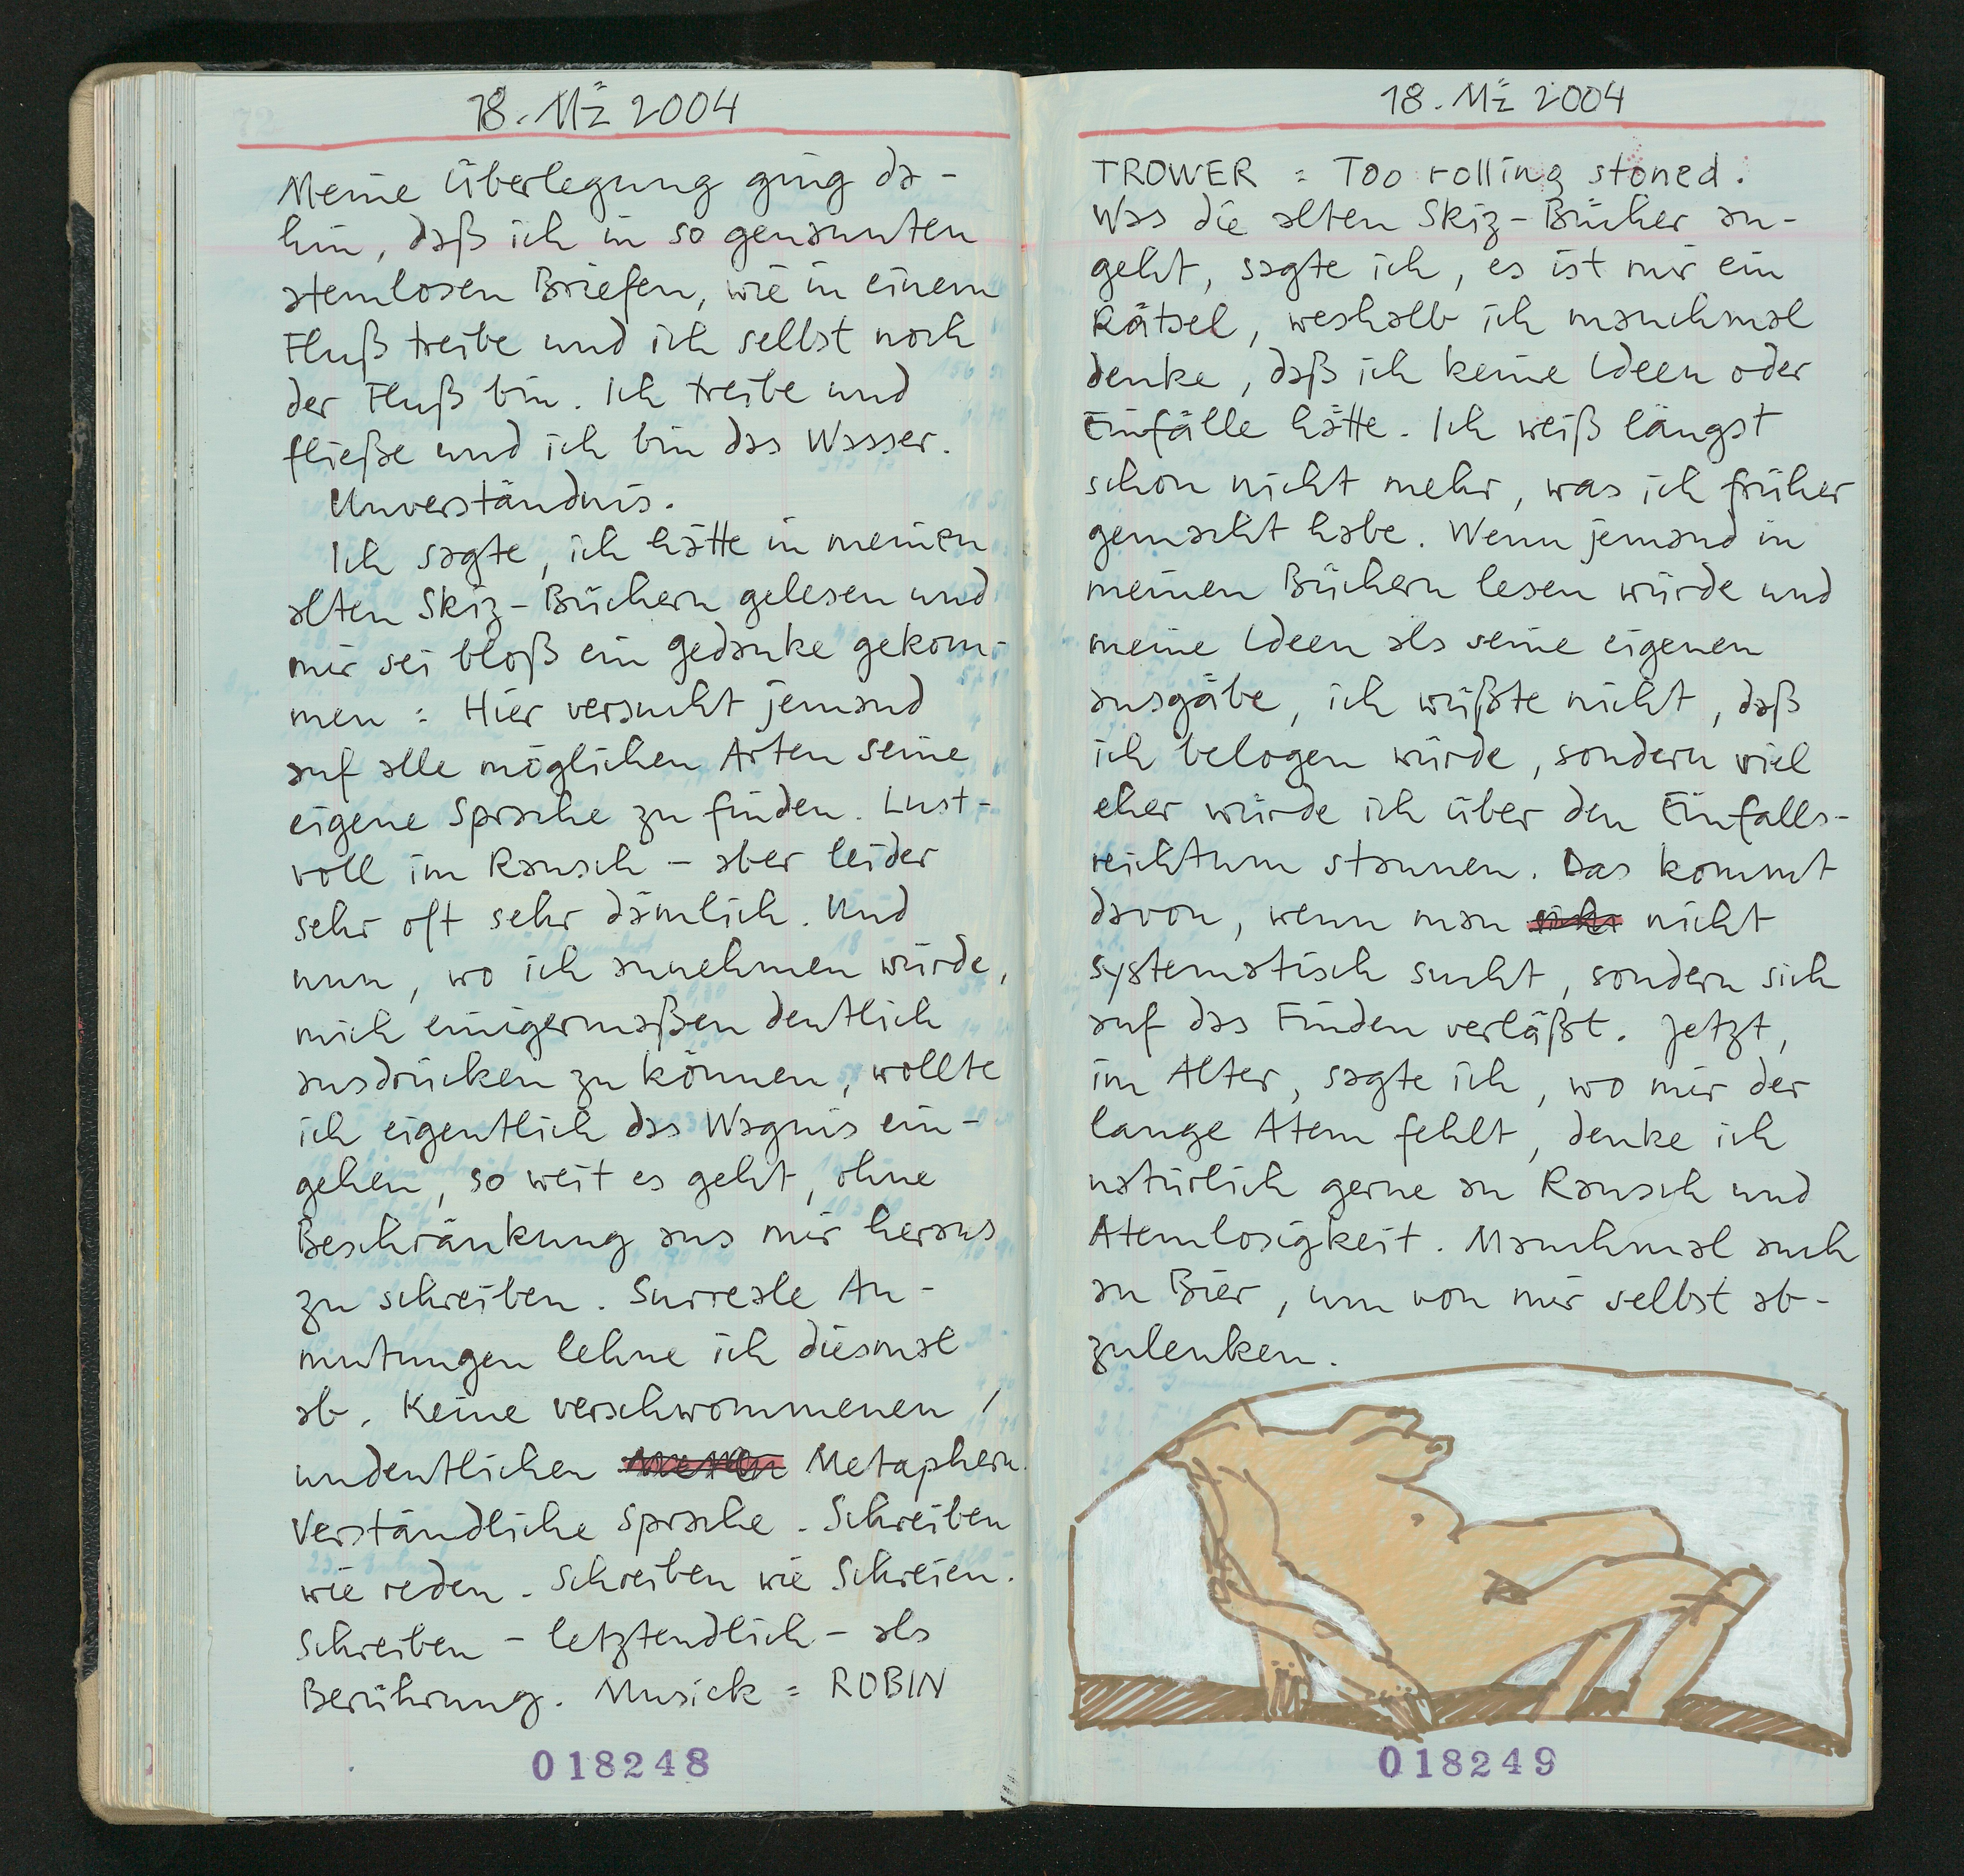 18. Mz 2004
Meine Überlegung ging da-
hin, daß ich in so genannten
atemlosen Briefen, wie in einem
Fluß treibe und ich selbst noch
der Fluß bin. Ich treibe und
fließe und ich bin das Wasser.
Unverständnis.
Ich sagte, ich hätte in meinen
alten Skiz-Büchern gelesen und
mir sei bloß ein Gedanke gekom-
men : Hier versucht jemand
auf alle möglichen Arten seine
eigene Sprache zu finden. Lust-
voll im Rausch – aber leider
sehr oft sehr dämlich. Und
nun, wo ich annehmen würde,
mich einigermaßen deutlich
ausdrücken zu können, wollte
ich eigentlich das Wagnis ein-
gehen, so weit es geht, ohne
Beschränkung aus mir heraus
zu schreiben. Surreale An-
mutungen lehne ich diesmal
ab. Keine verschwommenen /
undeutlichen Metaphern.
Verständliche Sprache. Schreiben
wie reden. Schreiben wie Schreien.
Schreiben – letztendlich – als
Berührung. Musick = ROBIN
018248
18. Mz 2004
TROWER = Too rolling stoned.
Was die alten Skiz-Bücher an-
geht, sagte ich, es ist mir ein
Rätsel, weshalb ich manchmal
denke, daß ich keine Ideen oder
Einfälle hätte. Ich weiß längst
schon nicht mehr, was ich früher
gemacht habe. Wenn jemand in
meinen Büchern lesen würde und
meine Ideen als seine eigenen
ausgäbe, ich wüßte nicht, daß
ich belogen würde, sondern viel
eher würde ich über den Einfalls-
reichtum staunen. Das kommt
davon, wenn man nicht
systematisch sucht, sondern sich
auf das Finden verläßt. Jetzt,
im Alter, sagte ich, wo mir der
lange Atem fehlt, denke ich
natürlich gerne an Rausch und
Atemlosigkeit. Manchmal auch
an Bier, um von mir selbst ab-
zulenken.
018249